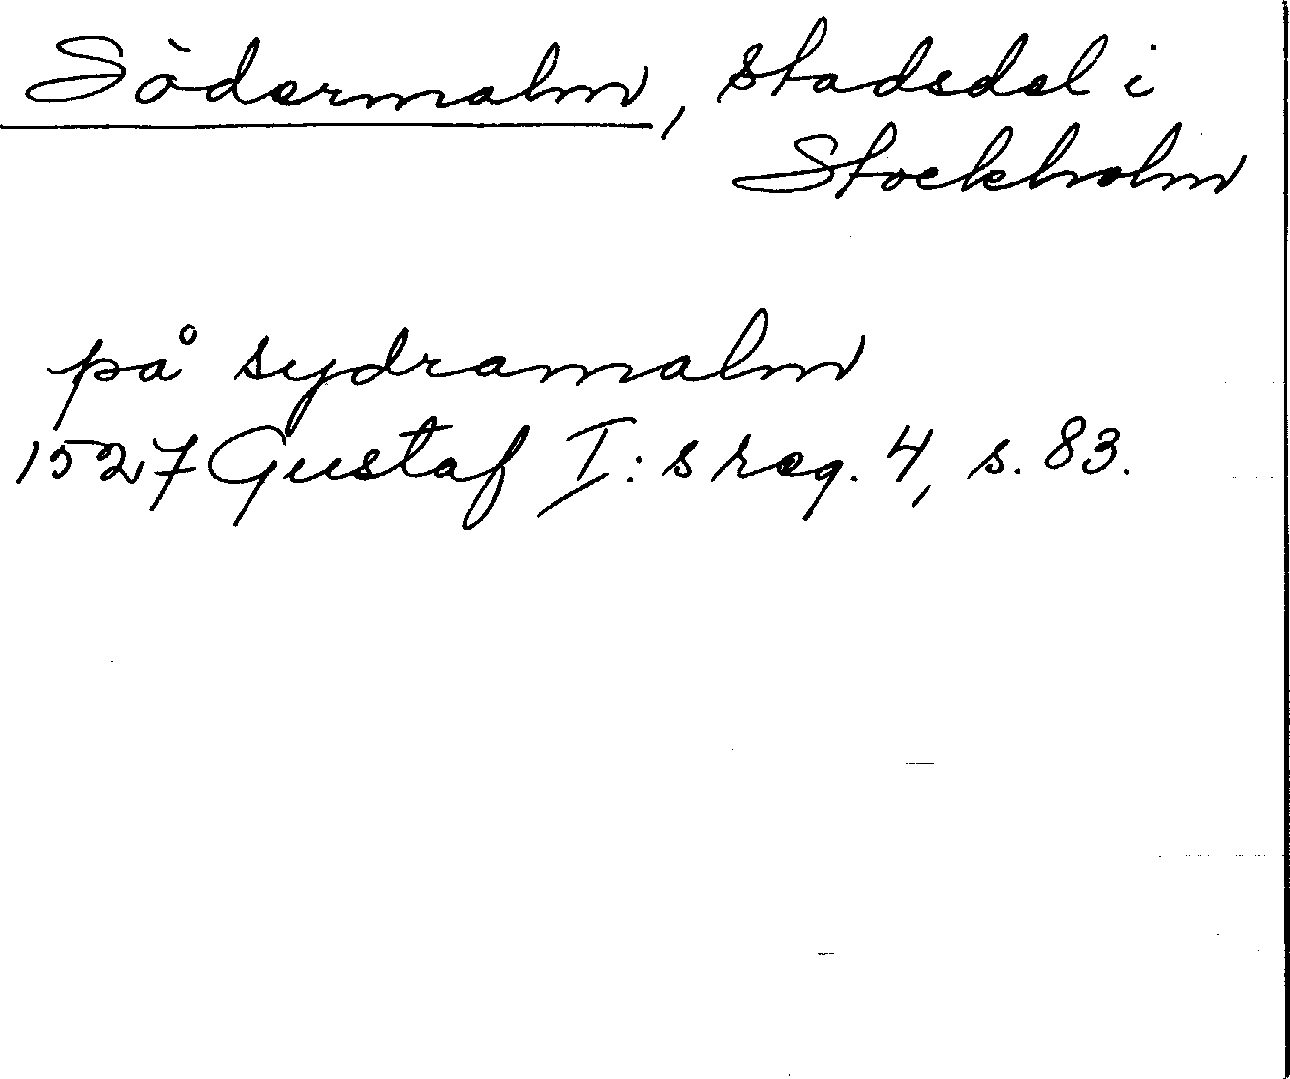 Södermalm, stadsdel i
Stockholm
på sydramalm
1527 Gustaf I:s reg. 4, s. 83.